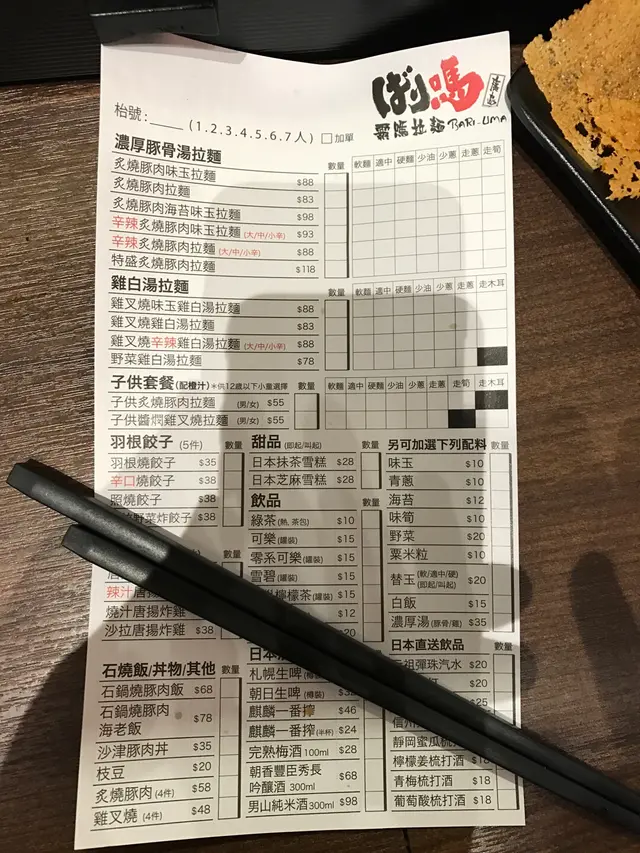 ばり嗎
霸嗎拉麵 BARI-UMA
枱號:____ (1.2.3.4.5.6.7人) □加單
濃厚豚骨湯拉麵 數量 軟麵 適中 硬麵 少油 少蔥 走蔥 走筍
炙燒豚肉味玉拉麵 $88
炙燒豚肉拉麵 $83
炙燒豚肉海苔味玉拉麵 $98
辛辣炙燒豚肉味玉拉麵 (大/中/小辛) $93
辛辣炙燒豚肉拉麵 (大/中/小辛) $88
特盛炙燒豚肉拉麵 $118
雞白湯拉麵 數量 軟麵 適中 硬麵 少油 少蔥 走蔥 走木耳
雞叉燒味玉雞白湯拉麵 $88
雞叉燒雞白湯拉麵 $83
雞叉燒辛辣雞白湯拉麵 (大/中/小辛) $88
野菜雞白湯拉麵 $78
子供套餐 (配橙汁) *供12歲以下小童選擇 數量 軟麵 適中 硬麵 少油 少蔥 走蔥 走筍 走木耳
子供炙燒豚肉拉麵 (男/女) $55
子供醬燜雞叉燒拉麵 (男/女) $55
羽根餃子 (5件) 數量
羽根燒餃子 $35
辛口燒餃子 $38
照燒餃子 $38
野菜炸餃子 $38
辣汁唐揚
燒汁唐揚炸雞
沙拉唐揚炸雞 $38
石燒飯/丼物/其他 數量
石鍋燒豚肉飯 $68
石鍋燒豚肉
海老飯 $78
沙津豚肉丼 $35
枝豆 $20
炙燒豚肉 (4件) $58
雞叉燒 (4件) $48
甜品 (即起/叫起) 數量
日本抹茶雪糕 $28
日本芝麻雪糕 $28
飲品 數量
綠茶 (熱, 茶包) $10
可樂 (罐裝) $15
零系可樂 (罐裝) $15
雪碧 (罐裝) $15
檸檬茶 (罐裝) $15
$12
$20
日本
札幌生啤
朝日生啤 (樽裝)
麒麟一番搾 $46
麒麟一番搾 (半杯) $24
完熟梅酒 100ml $28
朝香豐臣秀長
吟釀酒 300ml $68
男山純米酒 300ml $98
另可加選下列配料 數量
味玉 $10
青蔥 $10
海苔 $12
味筍 $10
野菜 $20
粟米粒 $10
替玉 (軟/適中/硬) (即起/叫起) $20
白飯 $15
濃厚湯 (豚骨/雞) $35
日本直送飲品 數量
元祖彈珠汽水 $20
$20
$25
信州
靜岡蜜瓜梳
檸檬姜梳打酒 $18
青梅梳打酒 $18
葡萄酸梳打酒 $18